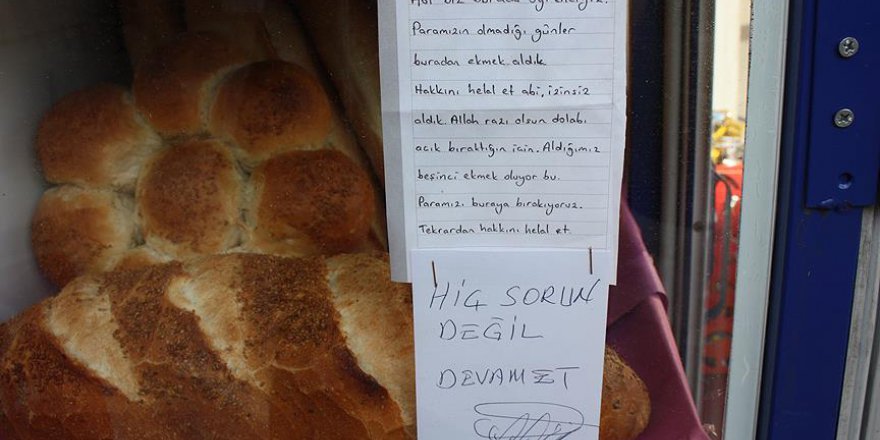 Paramızın olmadığı günler
buradan ekmek aldık.
Hakkını helal et abi, izinsiz
aldık. Allah razı olsun dolabı
açık bıraktığın için. Aldığımız
beşinci ekmek oluyor bu.
Paramızı buraya bırakıyoruz.
Tekrardan hakkını helal et.
HİÇ SORUN
DEĞİL
DEVAMET